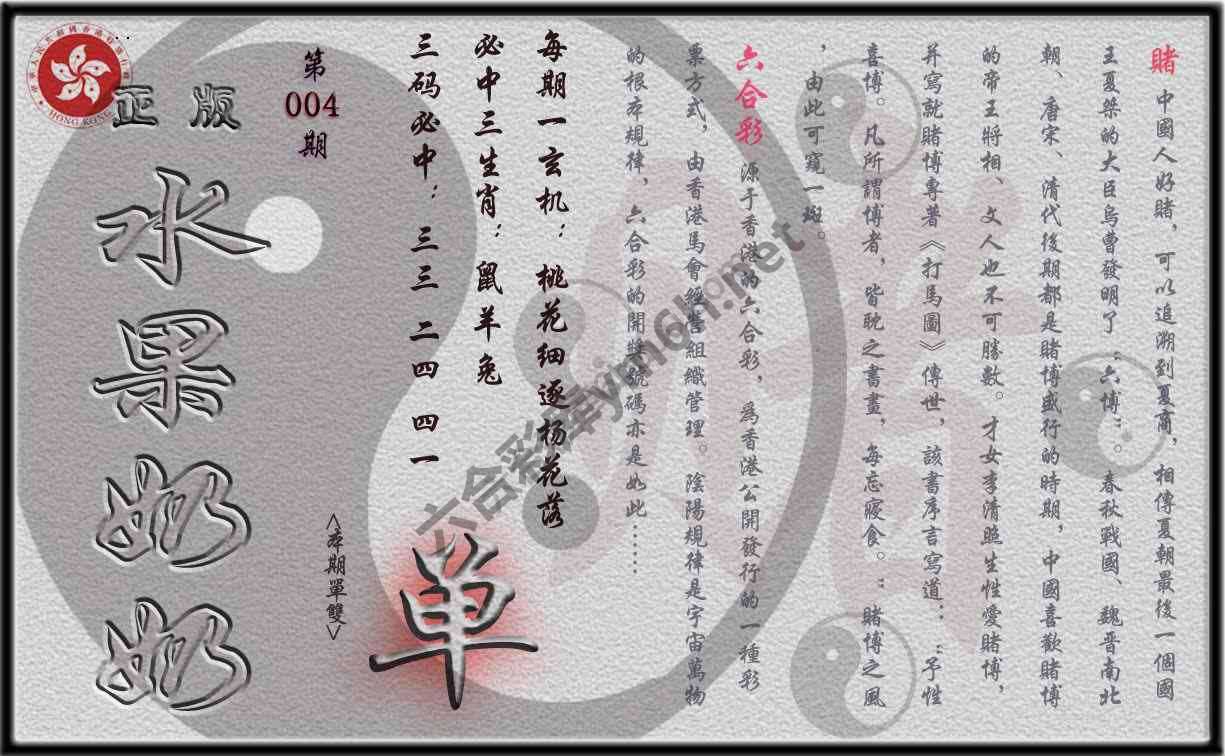 賭 中國人好賭，可以追溯到夏商，相傳夏朝最後一個國
王夏桀的大臣烏曹發明了“六博”。春秋戰國、魏晋南北
朝、唐宋、清代後期都是賭博盛行的時期，中國喜歡賭博
的帝王將相、文人也不可勝數。才女李清照生性愛賭博，
并寫就賭博專著《打馬圖》傳世，該書序言寫道：“予性
喜博。凡所謂博者，皆耽之書畫，每忘寢食。”賭博之風
，由此可窺一斑。
六合彩 源于香港的六合彩，為香港公開發行的一種彩
票方式，由香港馬會經營組織管理。陰陽規律是宇宙萬物
的根本規律，六合彩的開獎號碼亦是如此……
每期一玄机：桃花细逐杨花落
必中三生肖：鼠羊兔
三码必中：三三 二四 四一
單
<本期單雙>
第
004
期
正版
水果奶奶
HONG KONG
六合彩库ym6h.net